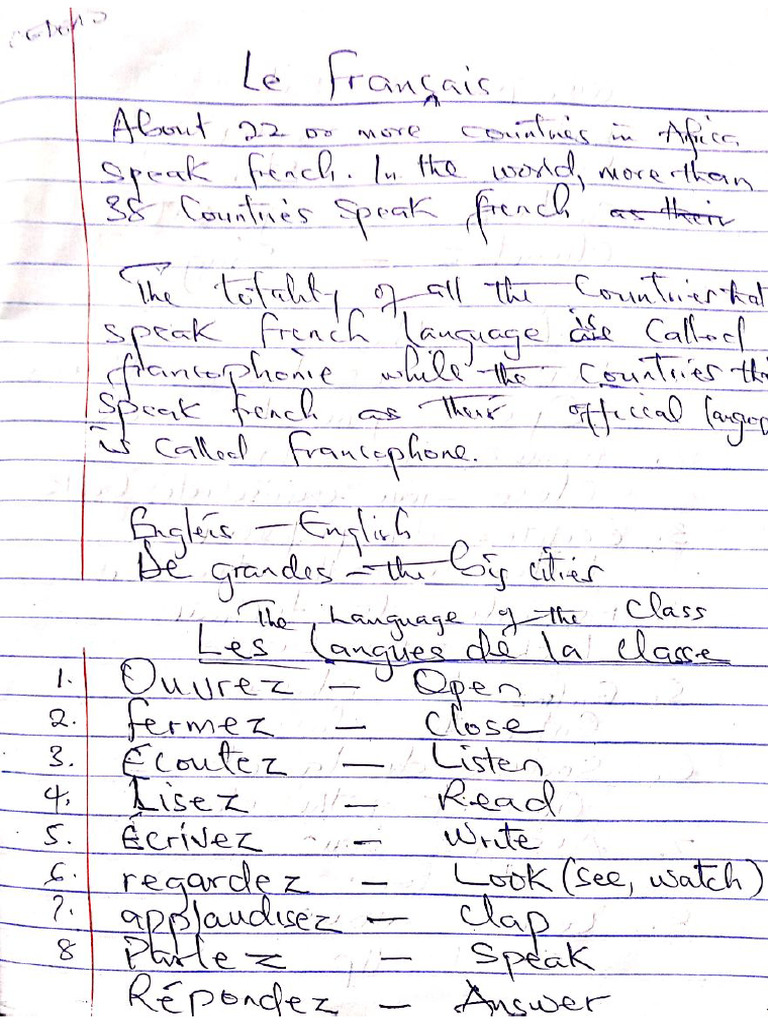 Le Français
About 22 or more countries in Africa
speak french. In the world, more than
38 Countries speak french as their
The totality of all the Countries that
speak french language is are Called
francophonie while the Countries tha
speak french as their official langag
is Called francophone.
Englèis – English
De grandes – the big cities
The Language of the Class
Les langues de la classe
1. Ouvrez – Open
2. fermez – Close
3. Écoutez – Listen
4. Lisez – Read
5. Écrivez – Write
6. regardez – Look (see, watch)
7. applaudisez – Clap
8 Parlez – Speak
Répondez – Answer